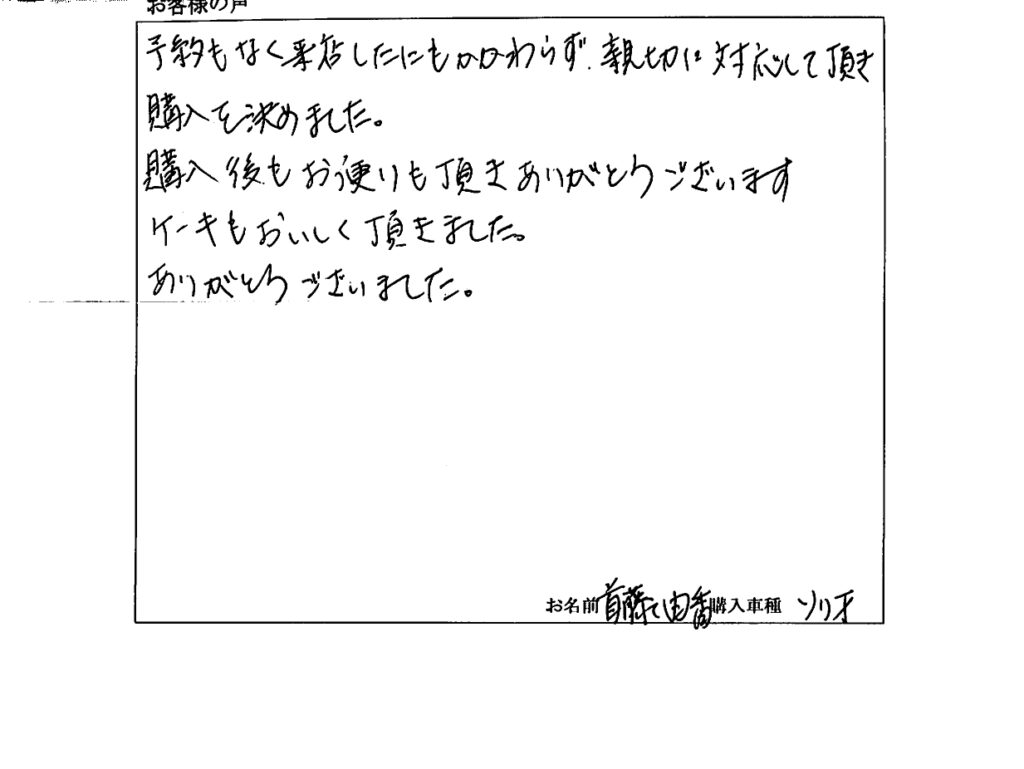 お客様の声
予約もなく来店したにもかかわらず、親切に対応して頂き
購入を決めました。
購入後もお便りも頂きありがとうございます
ケーキもおいしく頂きました。
ありがとうございました。
お名前 首藤 由香 購入車種 ソリオ